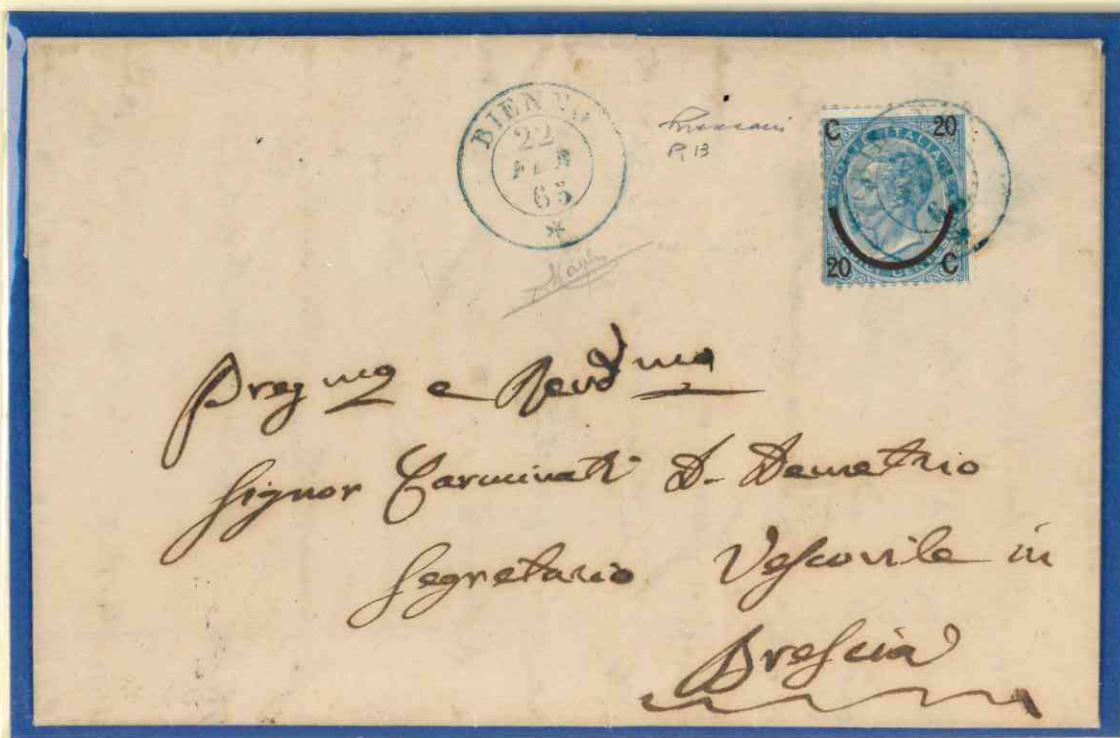 BIENNO
22
FEB
65
*
P, 13
C 20
POSTE ITALIANE
20 C
Preg.ma e Revd.ma
Signor Carminati D. Demetrio
Segretario Vescovile in
Brescia